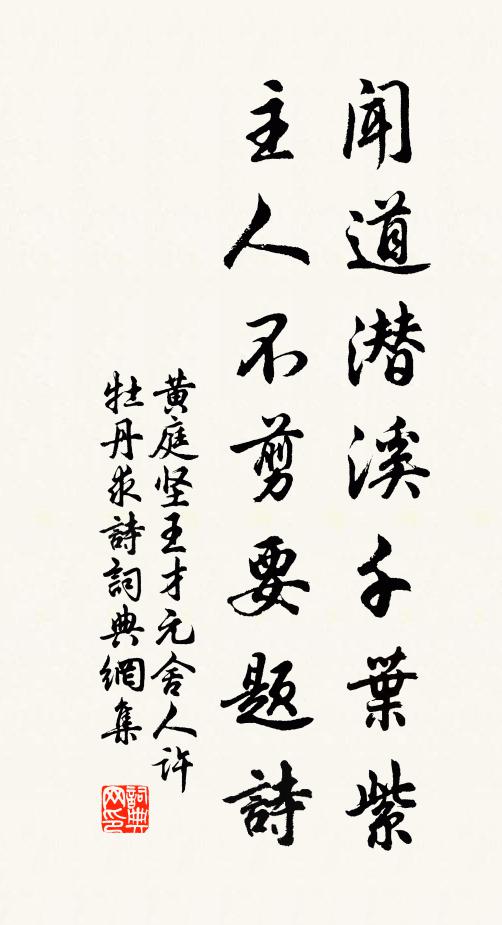 闻道潜溪千葉紫
主人不剪要题詩
黄庭坚王才元舍人许
牡丹求詩詞典網集
詞典
网印